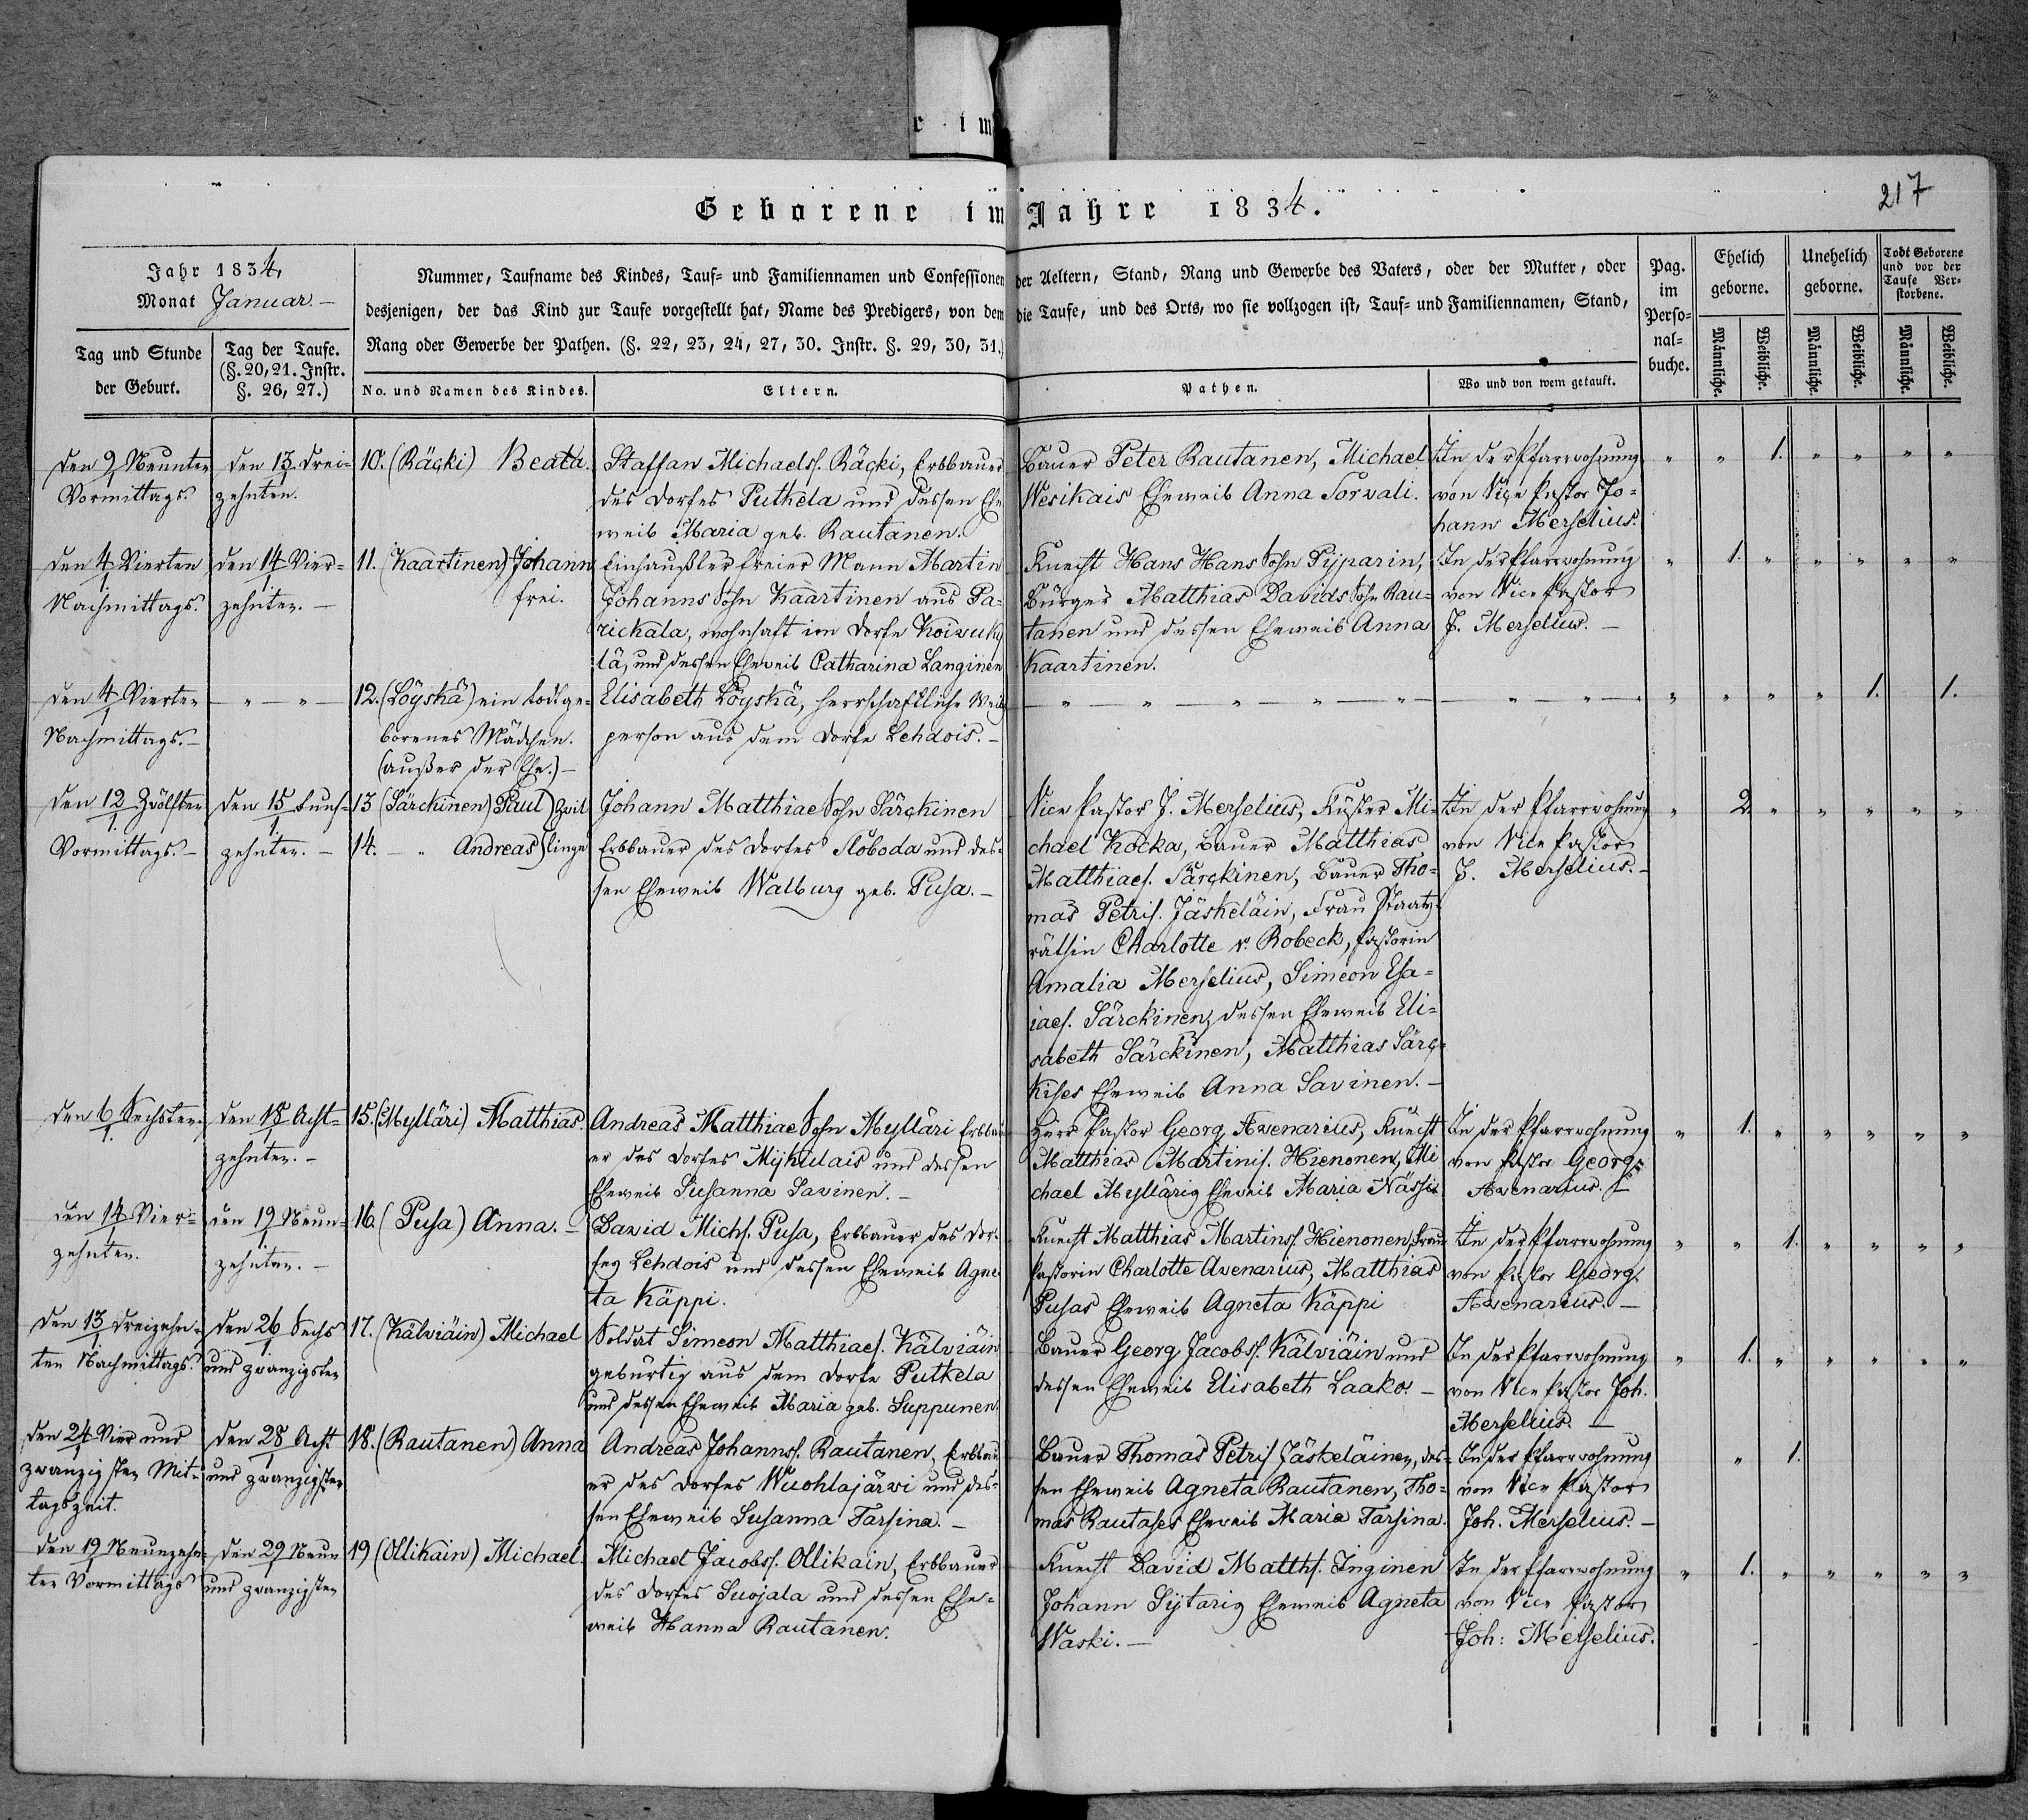 r im
217
Geborene im Jahre 1834.
Jahr 1834,
Monat Januar.
Tag und Stunde
der Geburt.
Tag der Taufe.
(§. 20, 21. Instr.
§. 26, 27.)
Nummer, Taufname des Kindes, Tauf- und Familiennamen und Confessionen der Aeltern, Stand, Rang und Gewerbe des Vaters, oder der Mutter, oder
desjenigen, der das Kind zur Taufe vorgestellt hat, Name des Predigers, von dem die Taufe, und des Orts, wo sie vollzogen ist, Tauf- und Familiennamen, Stand,
Rang oder Gewerbe der Pathen. (§. 22, 23, 24, 27, 30. Instr. §. 29, 30, 31.)
No. und Namen des Kindes.
Eltern.
Pathen.
Wo und von wem getauft.
Pag.
im
Perso-
nal-
buche.
Ehelich
geborne.
Unehelich
geborne.
Todt Geborene
und vor der
Taufe Ver-
storbene.
Männliche.
Weibliche.
Männliche.
Weibliche.
Männliche.
Weibliche.
den 9/1 Neunten
Vormittags.
den 13. drei-
zehnten.
10. (Räcki) Beata.
Staffan Michaelss. Räcki, Erbbauer
des Dorfes Putkela und dessen Ehe
weib Maria geb. Rautanen.
Bauer Peter Rautanen, Michael
Wesikais Eheweib Anna Torvali.
In der Pfarrwohnung
von Vice Pastor Jo-
hann Merselius.
" " 1. " " " "
den 4/1 Vierten
Nachmittags.
den 14/1 Vier-
zehnten. -
11. (Kaartinen) Johann
frei.
Einhäußler freier Mann Martin
Johanns Sohn Kaartinen aus Pa-
rickala, wohnhaft im Dorfe Koiwuky
lä, und dessen Eheweib Catharina Langinen
Knecht Hans Hans Sohn Pijparin,
Bürger Matthias Davids Sohn Rau-
tanen und dessen Eheweib Anna
Kaartinen.
In der Pfarrwohnung
von Vice Pastor
J. Merselius. -
" 1. " " " " "
den 4/1 Vierten
Nachmittags. -
" - "
12. (Löyskä) ein todtge-
borenes Mädchen.
(außer der Ehe.) -
Elisabeth Löyskä, herrschaftliche Weib
person aus dem Dorfe Lehdois. -
" " " " 1. 1.
den 12/1 Zwölften
Vormittags. -
den 15/1 funf-
zehnten. -
13 (Särckinen) Paul) Zwil
14. - " Andreas) linge
Johann Matthiae Sohn Särckinen
Erbbauer des Dorfes Sloboda und des-
sen Eheweib Walburg geb. Pusa. -
Vice Pastor J. Merselius, Küster Mi-
chael Kocka, Bauer Matthias
Matthiaes. Särckinen, Bauer Tho-
mas Petris. Jäskeläin, Frau Staats-
räthin Charlotte v. Robeck, Pastorin
Amalia Merselius, Simeon Esa-
iaes. Särckinen, dessen Eheweib Eli-
sabeth Särckinen, Matthias Särc-
kises Eheweib Anna Savinen. -
In der Pfarrwohnung
von Vice Pastor
J. Merselius. -
" 2 " " " " "
den 6/1 Sechsten.
den 18/1 Acht-
zehnten. -
15. (Mylläri) Matthias.
Andreas Matthiae Sohn Mylläri Erbbau
er des Dorfes Mijkulais und dessen
Eheweib Susanna Savinen. -
Herr Pastor Georg Avenarius, Knecht
Matthias Martinis. Hienonen, Mi
chael Myllärig Eheweib Maria Nässi
In der Pfarrwohnung
von Pastor Georg
Avenarius.
" 1. " " " " "
den 14/1 Vier-
zehnten.
den 19/1 Neun-
zehnten. -
16. (Pusa) Anna. -
David Michs. Pusa, Erbbauer des Dor-
fes Lehdois und dessen Eheweib Agne
ta Käppi.
Knecht Matthias Martinss. Hienonen, Frau
Pastorin Charlotte Avenarius, Matthias
Pusas Eheweib Agneta Käppi
In der Pfarrwohnung
von Pastor Georg
Avenarius. -
" " 1. " " " "
den 13/1 dreizehn-
ten Nachmittags.
den 26/1 Sechs
und zwanzigsten
17. (Kälviäin) Michael
Soldat Simeon Matthiaes. Kälviäin
gebürtig aus dem Dorfe Putkela
und dessen Eheweib Maria geb. Suppunen.
Bauer Georg Jacobss. Kälviäin und
dessen Eheweib Elisabeth Laako. -
In der Pfarrwohnung
von Vice Pastor Joh.
Merselius. -
" 1. " " " " "
den 24/1 Vier und
zwanzigsten Mit-
tagszeit.
den 28/1 Acht
und zwanzigsten
18. (Rautanen) Anna
Andreas Johannss. Rautanen, Erbbau
er des Dorfes Wuohlajärwi und des-
sen Eheweib Susanna Tarsina. -
Bauer Thomas Petris Jäskeläinen, des-
sen Eheweib Agneta Rautanen, Tho-
mas Rautases Eheweib Maria Tarsina.
In der Pfarrwohnung
von Vice Pastor
Joh. Merselius. -
" 1.
den 19/1 Neunzehn-
ten Vormittags
den 29/1 Neun
und zwanzigsten
19 (Ollikain) Michael.
Michael Jacobss. Ollikain, Erbbauer
des Dorfes Suojala und dessen Ehe-
weib Hanna Rautanen.
Knecht David Matths. Inginen
Johann Sijtarig Eheweib Agneta
Waski. -
In der Pfarrwohnung
von Vice Pastor
Joh: Merselius.
" 1. " " " " "